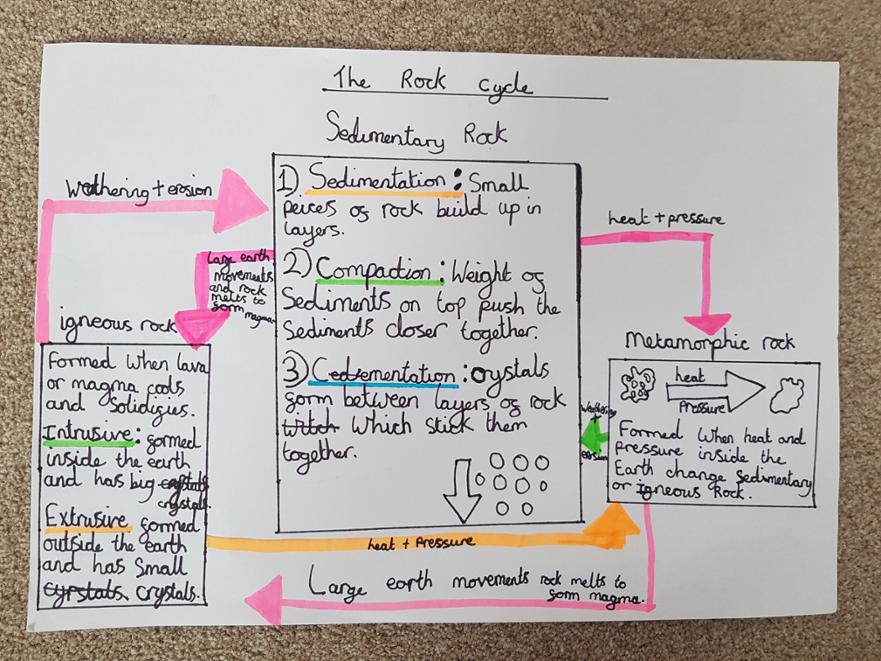 The Rock Cycle
Sedimentary Rock
Weathering + erosion
1) Sedimentation: Small
peices of rock build up in
layers.
2) Compaction: Weight of
Sediments on top push the
Sediments closer together.
3) Cementation: crystals
form between layers of rock
witch which stick them
together.
Large earth
movements
and rock
melts to
form magma
heat + pressure
igneous rock
Formed when lava
or magma cools
and solidifies.
Intrusive: formed
inside the earth
and has big crystals
crystals.
Extrusive formed
outside the earth
and has small
cyrstals crystals.
Metamorphic rock
heat
Pressure
Formed when heat and
pressure inside the
Earth change Sedimentary
or igneous Rock.
weathering
+
erosion
heat + Pressure
Large earth movements rock melts to
form magma.